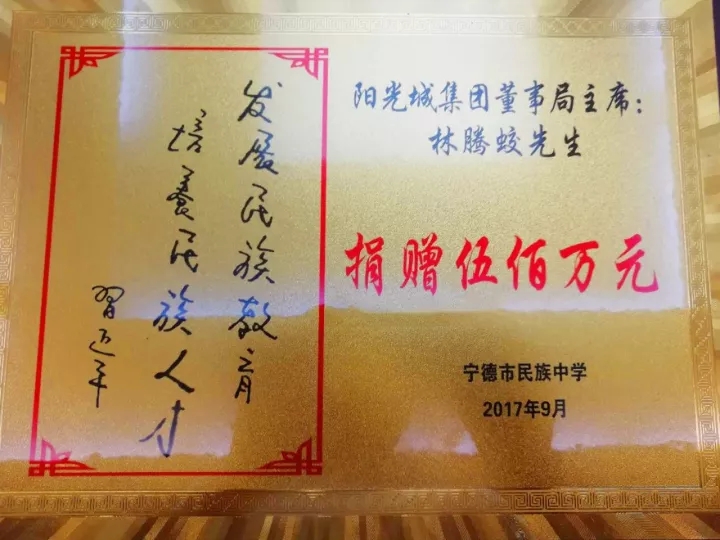 发展民族教育
培养民族人才
习近平
阳光城集团董事局主席：
林腾蛟先生
捐赠伍佰万元
宁德市民族中学
2017年9月